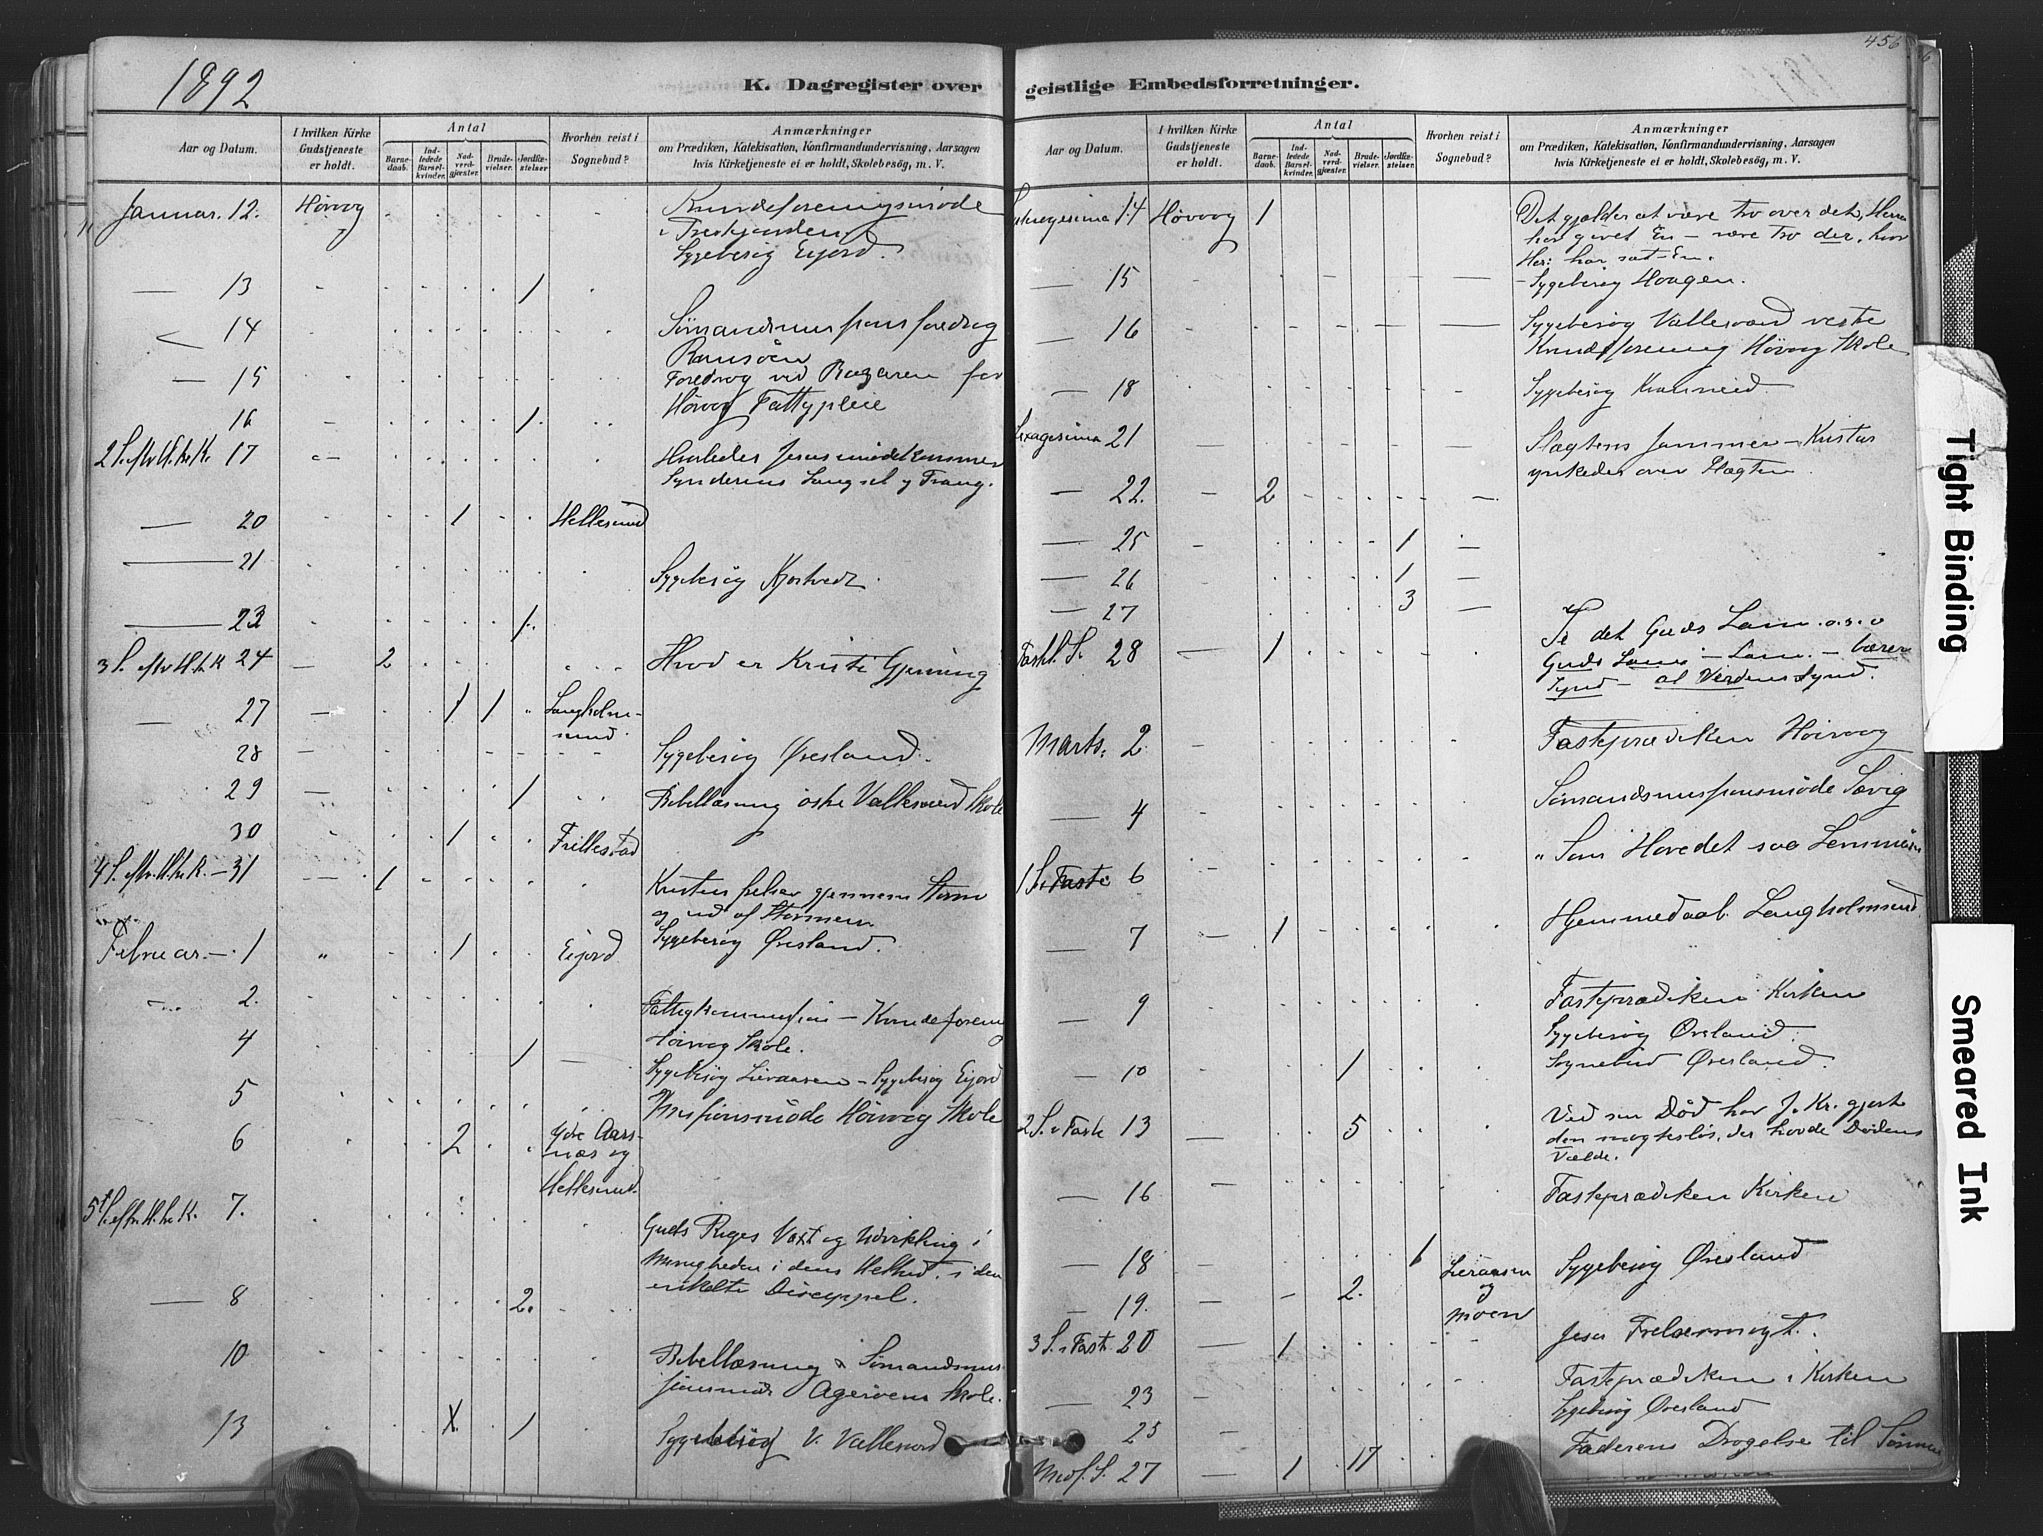 1892
K. Dagregister over
Aar og Datum.
I hvilken Kirke Gudstjeneste er holdt.
Antal
Barnedaab.
Indledede Barselkvinder.
Nadverdgjæster.
Brudevielser.
Jordfæstelser.
Hvorhen reist i Sognebud?
Anmærkninger
om Prædiken, Katekisation, Konfirmandundervisning, Aarsagen
hvis Kirketjeneste ei er holdt, Skolebesög, m. V.
Januar. 12. Høivog Kvindeforeningsmöde
i
Sygebesög Eijord.
— 13 1
14
Ramsöen
— 15 Foredrag ved Bazaren for
Høivog Fattigpleie
16 1
2 S. eftr. H. 3 K. 17 Hvorledes Jesus imödekommer
Synderens Længsel og Trang.
— 20 1 Hellesund
— 21
Sygebesög Kjostvedt
— 23 1
3 S. eftr H. 3 K 24 — 2 Hvad er Kristi Gjerning
— 27 — 1 1 Langholm-
sund
28 — Sygebesög Øresland.
29 — 1 Bibellæsning östre Vallesværd Skole
30 1 Frillestad
4 S. eftr. H. 3 K. — 31 — 1
Kristus frelser gjennem Storm
og ud af Stormen.
Februar. — 1 " 1 Eijord Sygebesög Øresland.
2. Fattigkommission — Kvindeforening
Høivog Skole.
4 1 —
Sygebesög Lieraasen — Sygebesög Eijord
5 Missionsmöde Høivog Skole
6 2 Ydre Aars-
næs og
Hellesund.
5 S. eftr. H. 3 K. 7.
Guds Riges Væxt og Udvikling i
Menigheden i dens Helhed, i den
enkelte Discippel.
— 8 2.
10 Bibellæsning & Sömandsmis-
sionsmöde Ageröens Skole.
13 X 1 Sygebesög V. Vallesværd
456
geistlige Embedsforretninger.
Aar og Datum.
I hvilken Kirke Gudstjeneste er holdt.
Antal
Barnedaab.
Indledede Barselkvinder.
Nadverdgjæster.
Brudevielser.
Jordfæstelser.
Hvorhen reist i Sognebud?
Anmærkninger
om Prædiken, Katekisation, Konfirmandundervisning, Aarsagen
hvis Kirketjeneste ei er holdt, Skolebesög, m. V.
14 Høivog 1 Det gjælder at være tro over det, Herren
har givet En — være tro der, hvor
Her: har sat En.
— 15 — Sygebesög Haagen.
— 16 Sygebesög Vallesværd vestre
Kvindeforening Høivog Skole
— 18 Sygebesög
Sexagesima 21 — Slægtens Jammer — Kristus
ynkedes over Slægten
— 22. — 2
— 25 - 1 —
— 26 1 —
— 27 3 —
Fastel. S. 28 — 1 Se det Guds Lam o.s.v
Guds Lam — Lam. — bærer
Synd — al Verdens Synd.
Marts. 2 Fasteprædiken Höivog
— 4 Sömandsmissionsmöde Sævig
1 S i Faste 6 "Som Hovedet saa Lemmerne
— 7 — 1 Hjemmedaab. Langholmsund.
— 9 Fasteprædiken Kirken
Sygebesög Øresland.
— 10 1 Sognebud Øresland.
2 S. i Faste 13 — 5 Ved sin Död har J. Kr. gjort
den magteslös, der havde Dödens
Vælde.
— 16 Fasteprædiken Kirken
— 18 1 Sygebesög Øresland
— 19. — 2. Lieraasen
og
Moen
3 S. i Fast. 20 — 1 Jesu Frelsermagt.
— 23 Fasteprædiken i Kirken
Sygebesög Øresland
— 25 -
Midf. S. 27 — 1 17 Faderens Dragelse til Sönnen
Tight Binding
Smeared Ink